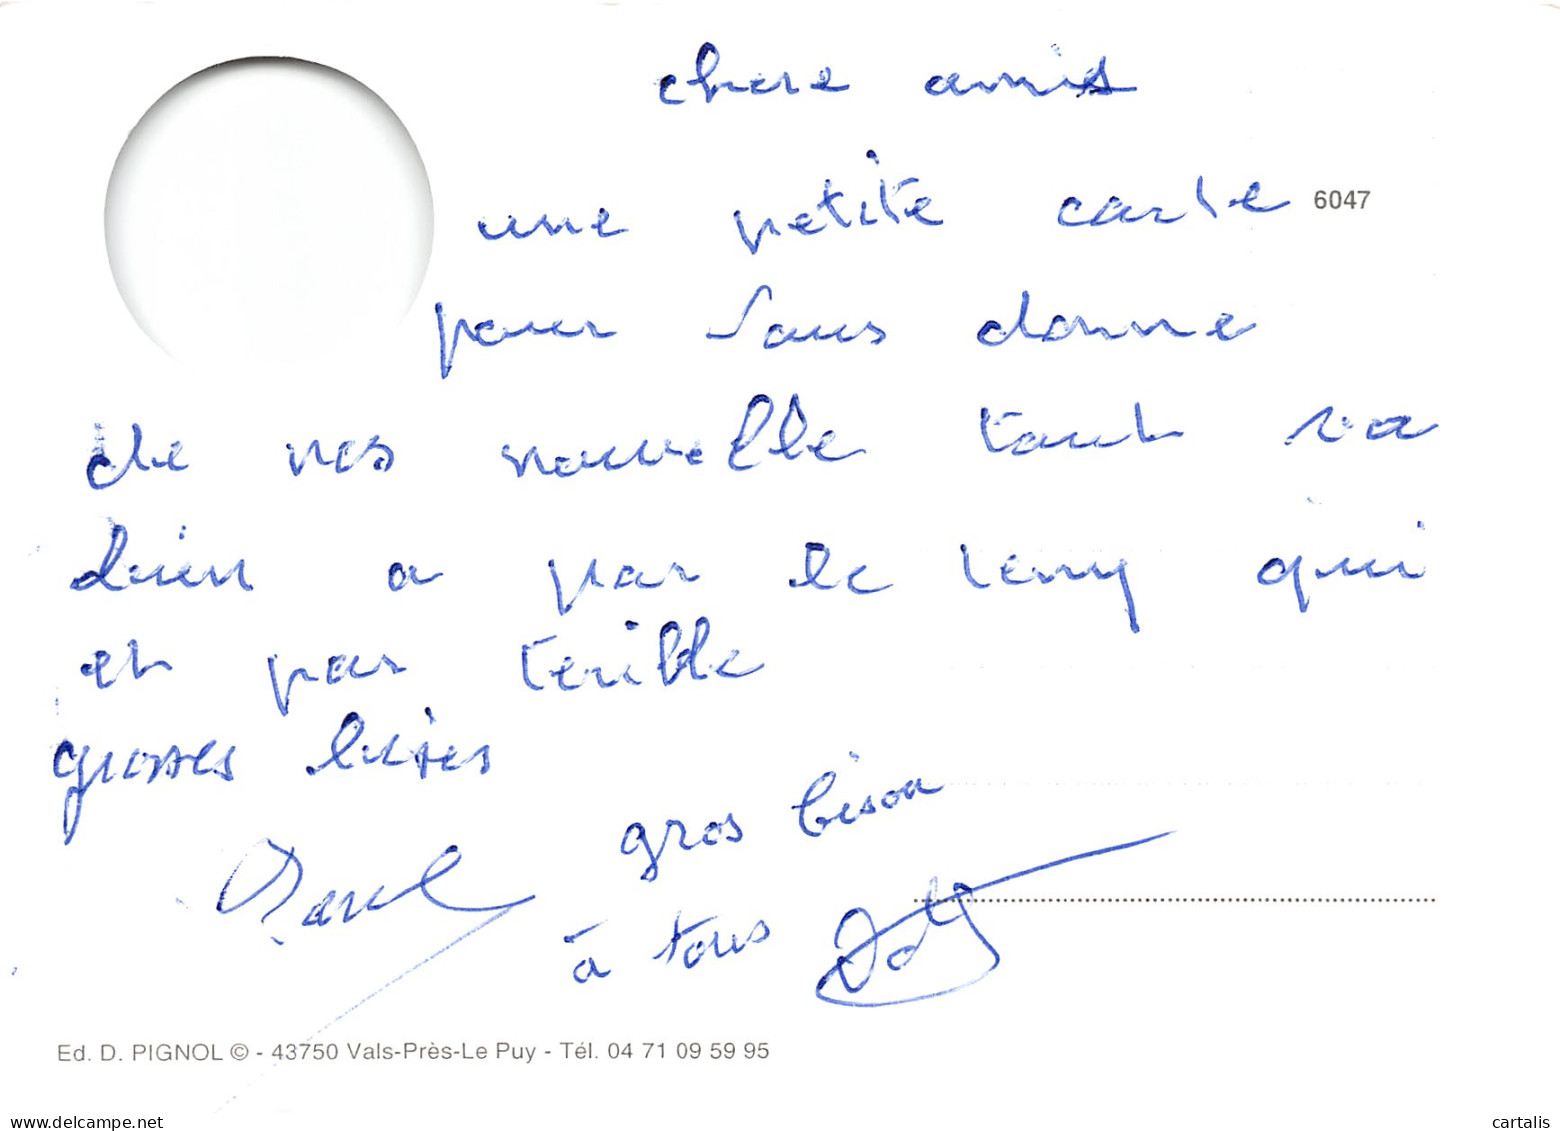 chere amis
une petite carte 6047
pour vous donne
de nos nouvelle tout va
bien a par le temp qui
et pas terible
grosses bises
gros bisou
à tous
Ed. D. PIGNOL © - 43750 Vals-Près-Le Puy - Tél. 04 71 09 59 95
www.delcampe.net
cartalis